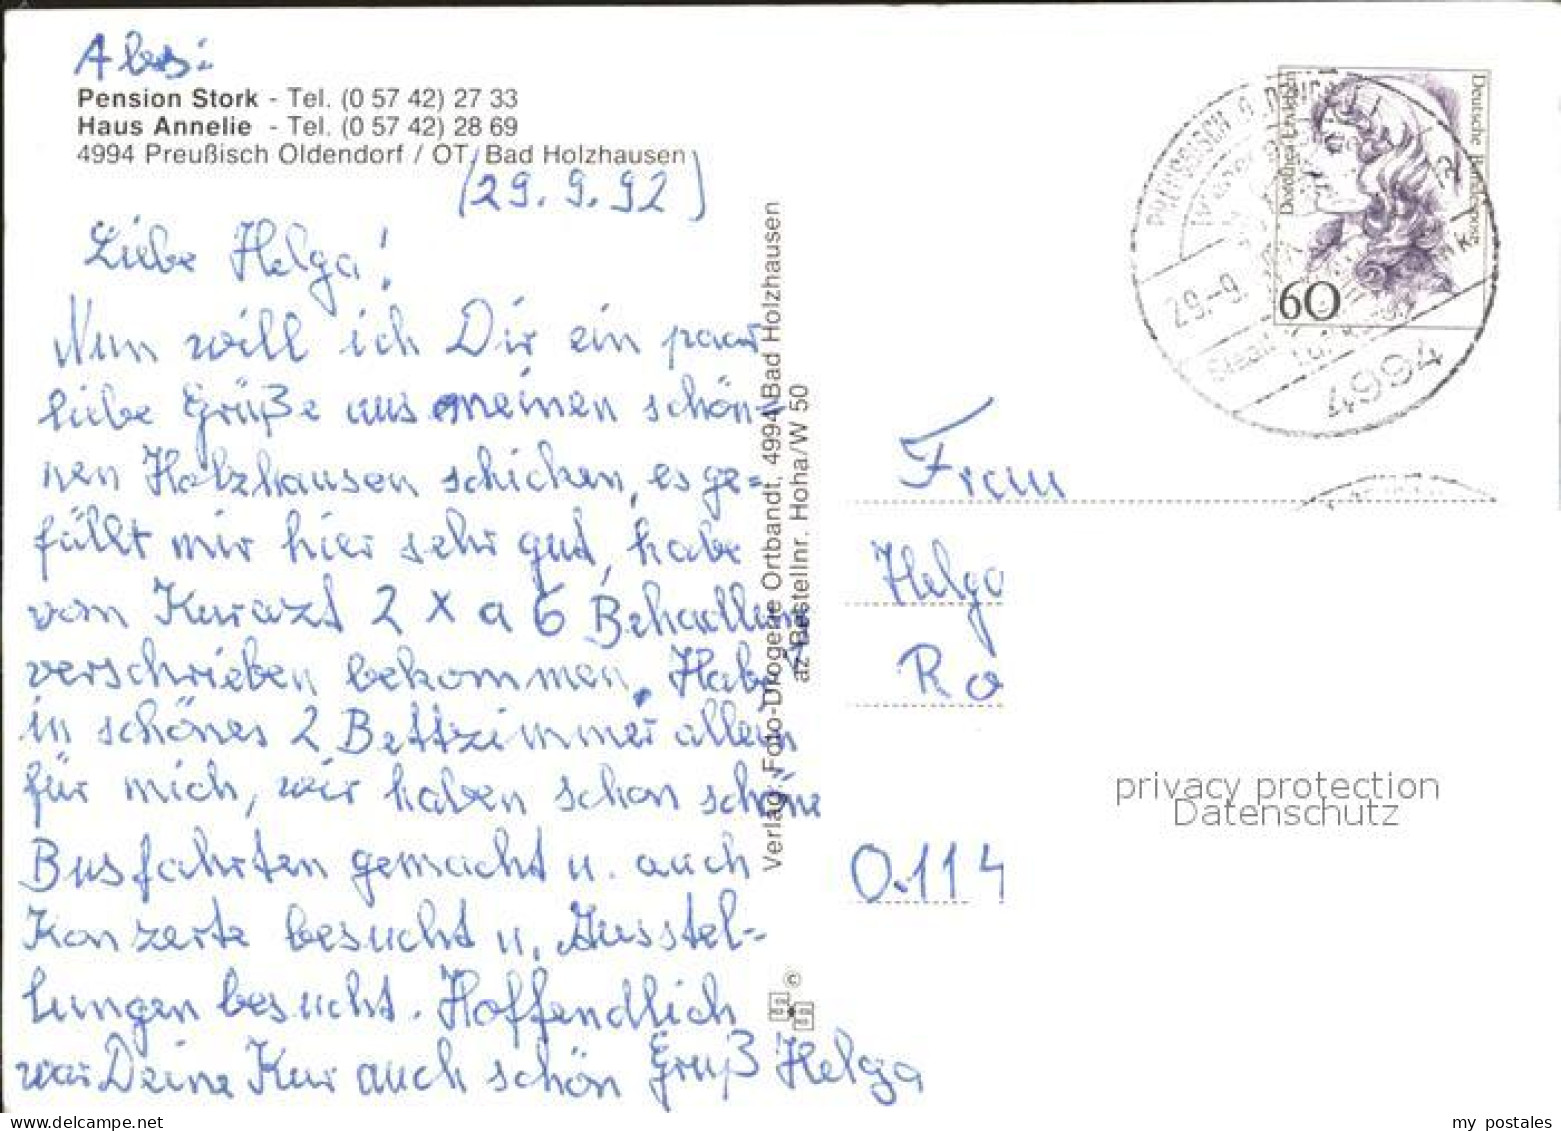 Abs:
Pension Stork - Tel. (0 57 42) 27 33
Haus Annelie - Tel. (0 57 42) 28 69
4994 Preußisch Oldendorf / OT. Bad Holzhausen
(29. 9. 92)
Liebe Helga!
Nun will ich Dir ein paar
liebe Grüße aus meinen schön-
nen Holzhausen schicken, es ge=
fällt mir hier sehr gut, habe
vom Kurazt 2 x a 6 Behadlung
verschrieben bekommen. Habe
in schönes 2 Bettzimmer allein
für mich, wir haben schon schöne
Busfahrten gemacht u. auch
Konzerte besucht u. Ausstel-
lungen besucht. Hoffendlich
war Deine Kur auch schön Gruß Helga
Verlag: Foto-Drogerie Ortbandt, 4994 Bad Holzhausen
az Bestellnr. Hoha/W 50
©
Deutsche Bundespost
Dorothea Erxleben
60
PREUSSISCH OLDENDORF
29.-9.
4994
Frau
Helga
Ro
O.114
privacy protection
Datenschutz
my postales